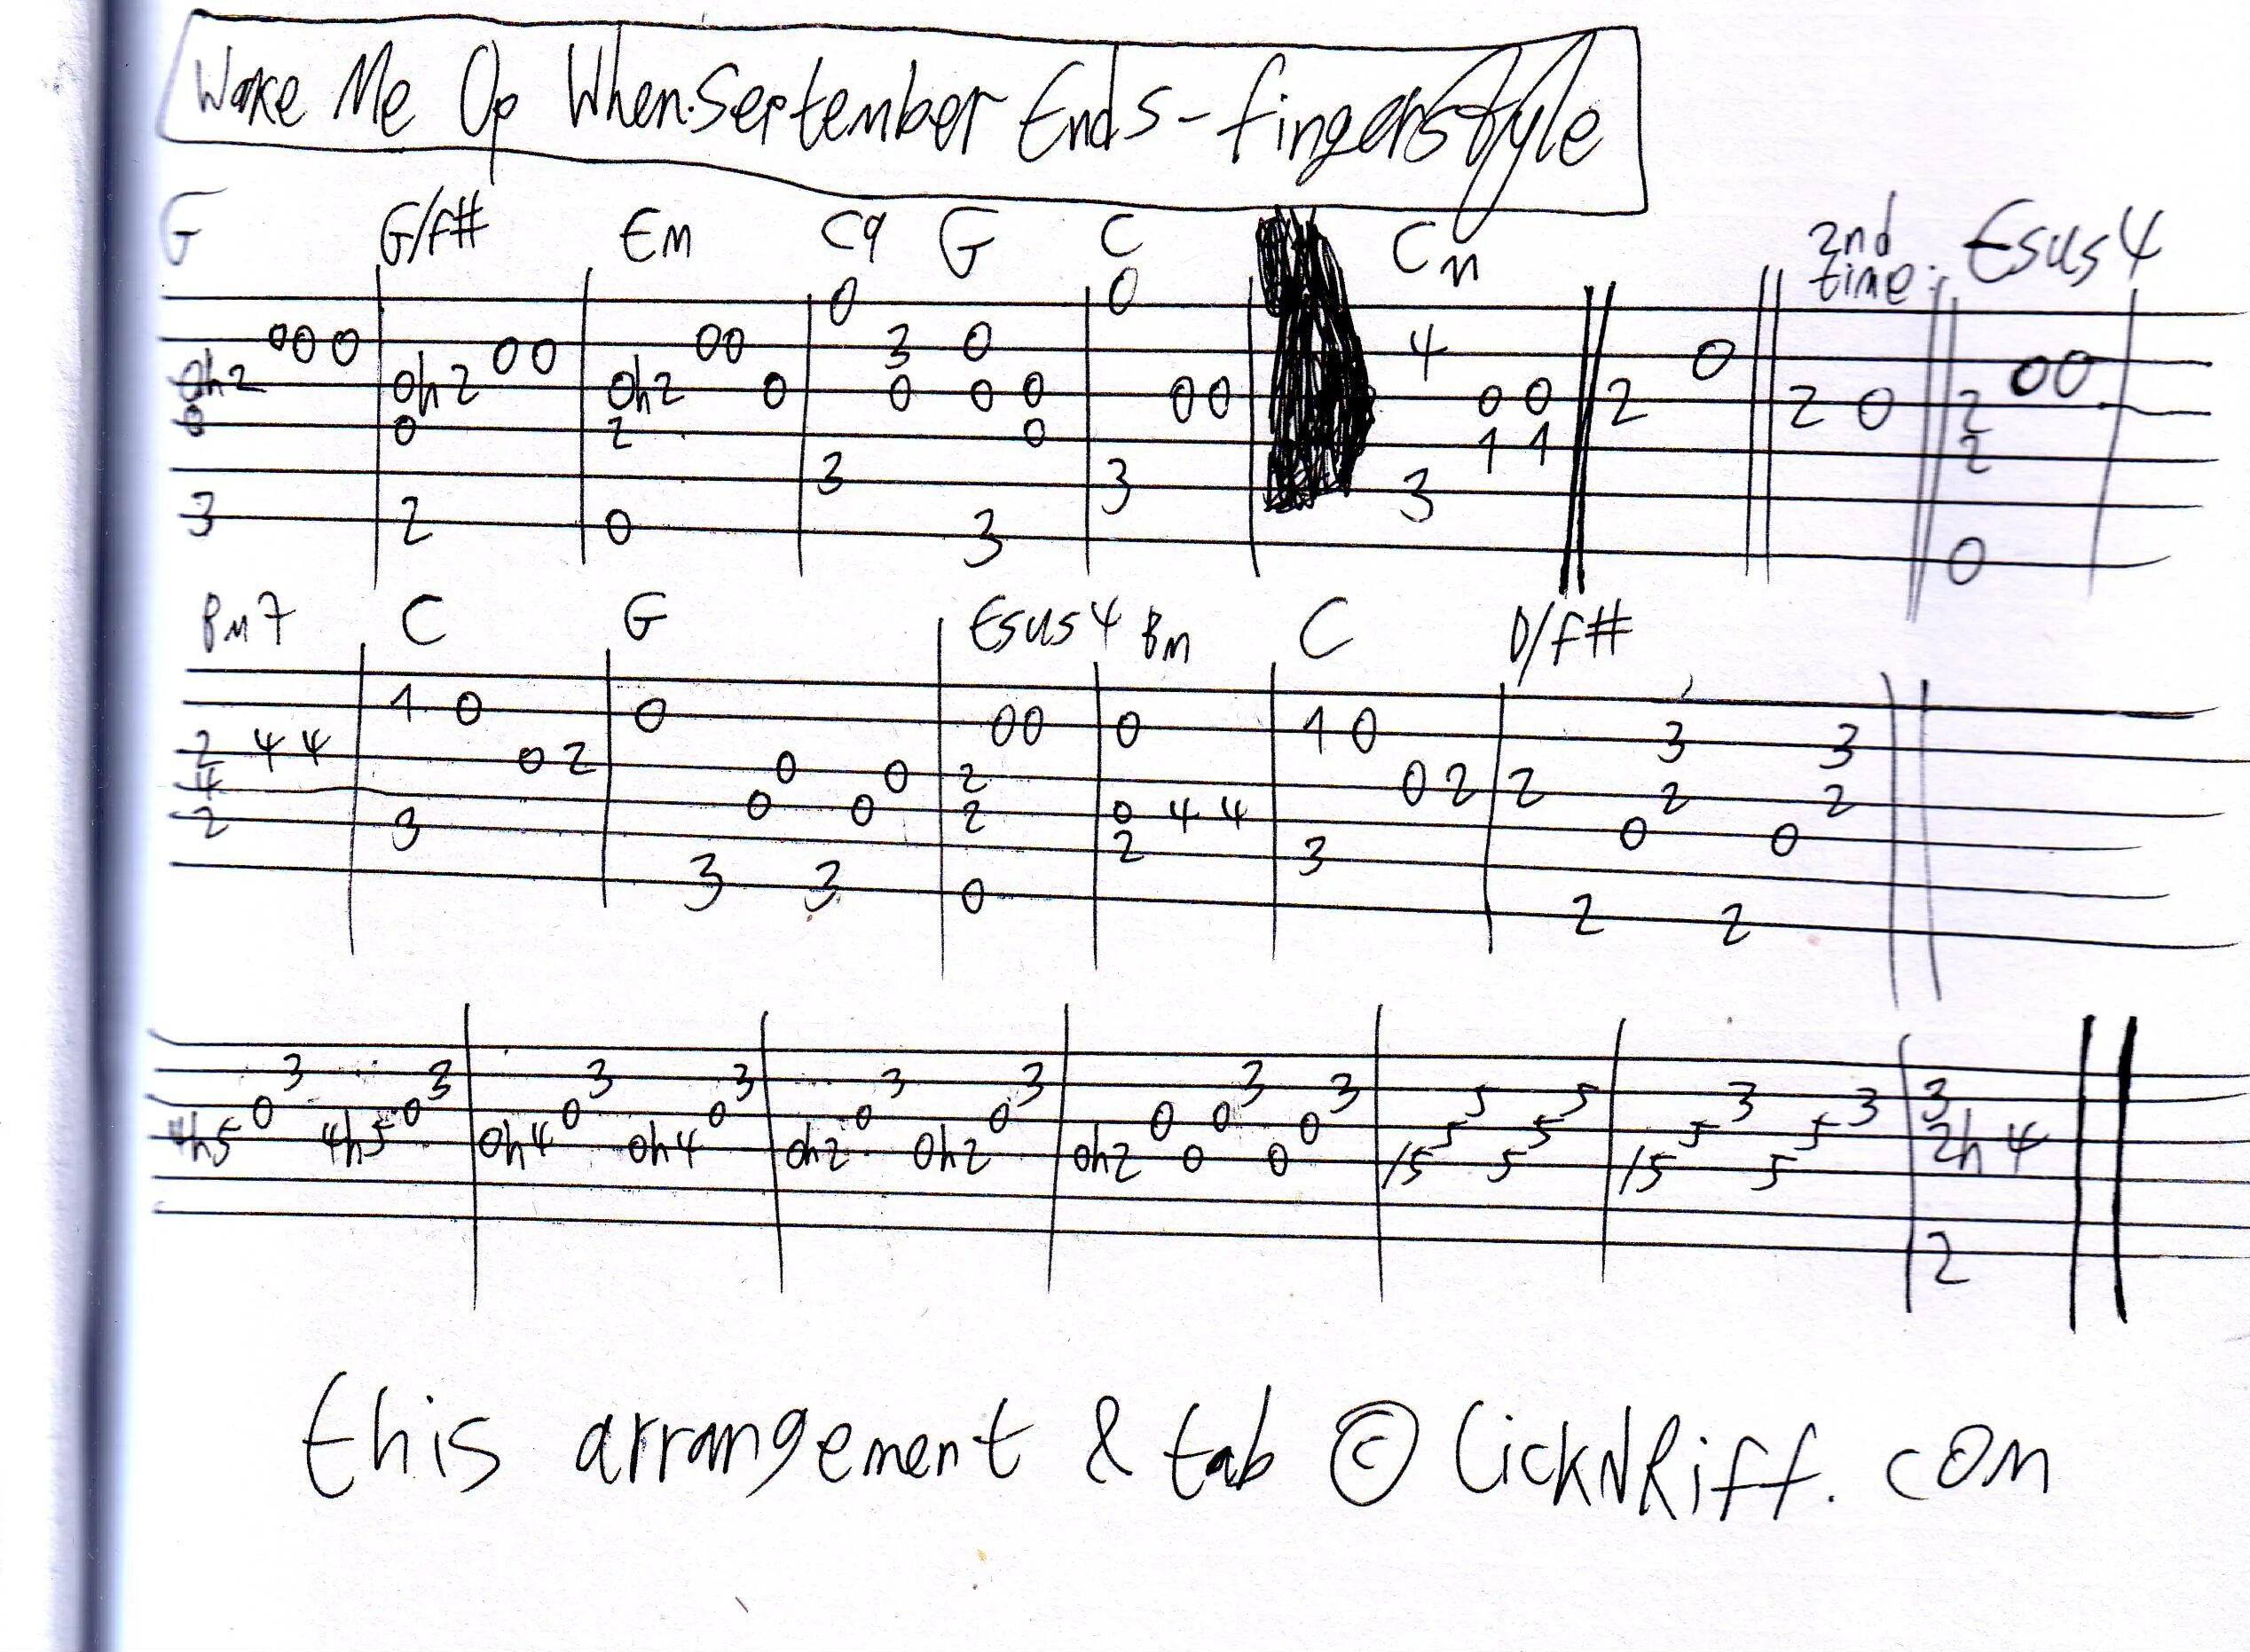 Wake Me Up When September Ends - fingerstyle
G G/F# Em C9 G C Cm 2nd time: Esus4
0 0
000 00 00 3 0 4 0 00
0h2 0h2 0h2 0 0 0 0 00 00 2 2 0 2
0 0 2 0 11 2
3 3 3
3 2 0 3 0
Bm7 C G Esus4 Bm C D/F#
1 0 0 00 0 1 0 3 3
2 44 02 0 0 2 02 2 2 2
4 0 0 2 0 44 0 0
2 3 2 3
3 3 0 2 2
3 3 3 3 3 3 3 3 5 5 3 3 3
0 0 0 0 0 0 0 0 0 5 5 5 5 2h4
4h5 4h5 0h4 0h4 0h2 0h2 0h2 0 0 /5 5 /5 5
2
this arrangement & tab © LickNRiff.com